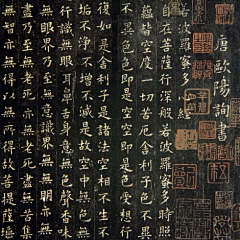 唐歐陽詢書
若波羅蜜多心經
自在菩薩行深般若波羅蜜多時照
蘊皆空度一切苦厄舍利子色不異
不異色色即是空空即是色受想行
復如是舍利子是諸法空相不生不
垢不淨不增不減是故空中無色無
行識無眼耳鼻舌身意無色聲香味
無眼界乃至無意識界無無明亦無
盡乃至無老死亦無老死盡無苦集
無智亦無得以無所得故菩提薩埵